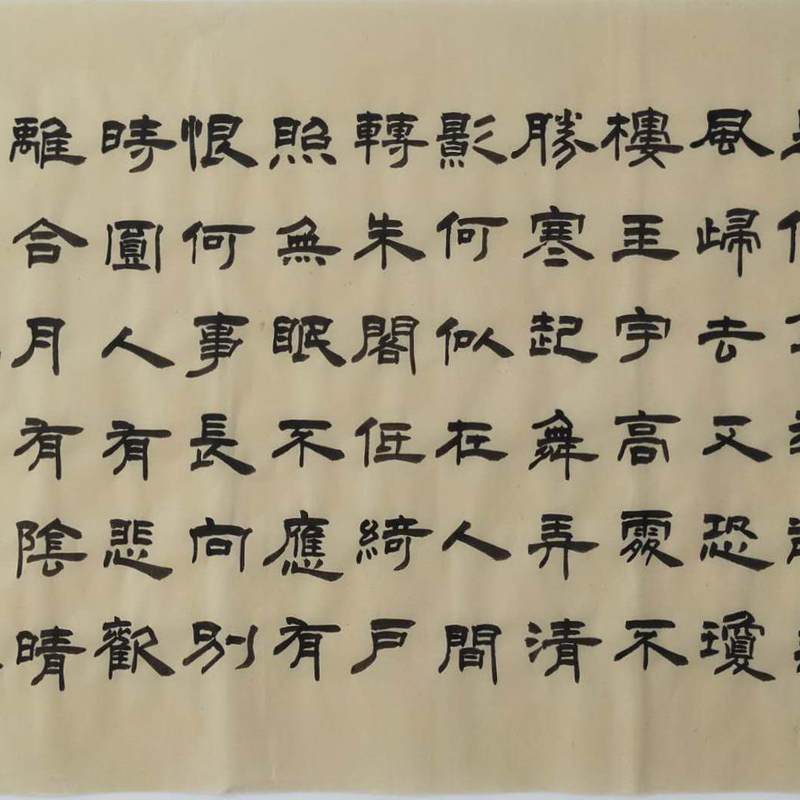 風歸去又恐瓊
樓玉宇高處不
勝寒起舞弄清
影何似在人間
轉朱閣低綺戶
照無眠不應有
恨何事長向別
時圓人有悲歡
離合月有陰晴